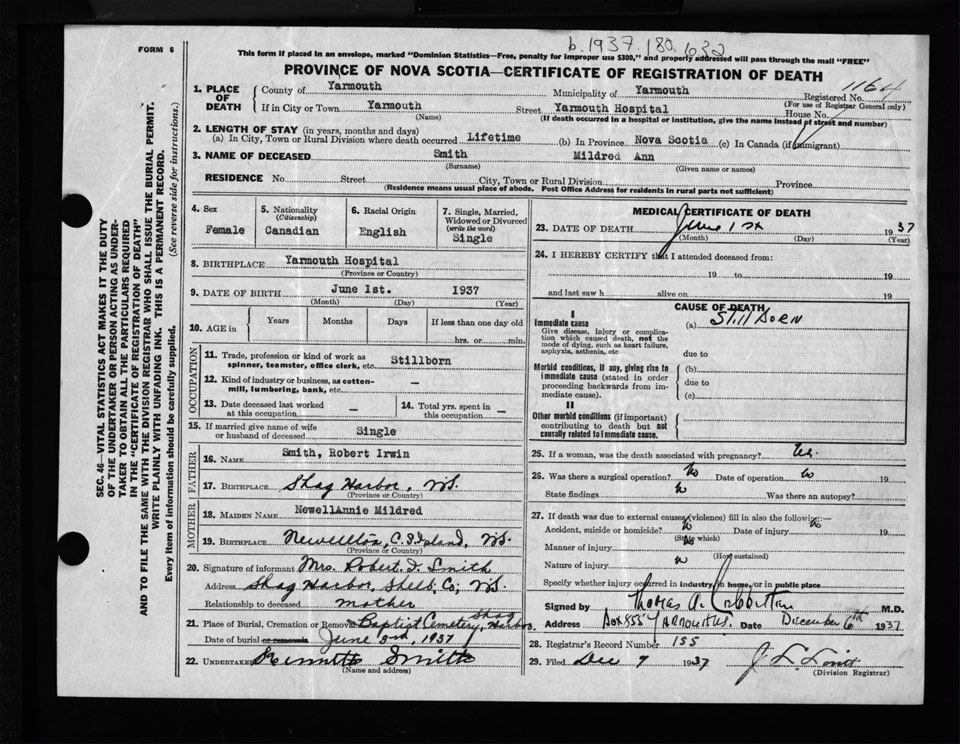 b.1937.180.632
FORM 6
This form if placed in an envelope, marked "Dominion Statistics—Free, penalty for improper use $300," and properly addressed will pass through the mail "FREE"
PROVINCE OF NOVA SCOTIA—CERTIFICATE OF REGISTRATION OF DEATH
1. PLACE OF DEATH
County of Yarmouth Municipality of Yarmouth Registered No. 1164
(For use of Registrar General only)
If in City or Town Yarmouth Street Yarmouth Hospital House No.
(Name) (If death occurred in a hospital or institution, give the name instead of street and number)
2. LENGTH OF STAY (in years, months and days)
(a) In City, Town or Rural Division where death occurred Lifetime (b) In Province Nova Scotia (c) In Canada (if immigrant)
3. NAME OF DECEASED Smith Mildred Ann
(Surname) (Given name or names)
RESIDENCE No. Street City, Town or Rural Division Province
(Residence means usual place of abode. Post Office Address for residents in rural parts not sufficient)
4. Sex Female
5. Nationality (Citizenship) Canadian
6. Racial Origin English
7. Single, Married, Widowed or Divorced (write the word) Single
8. BIRTHPLACE Yarmouth Hospital
(Province or Country)
9. DATE OF BIRTH June 1st. 1937
(Month) (Day) (Year)
10. AGE in Years Months Days If less than one day old
hrs. or min.
OCCUPATION
11. Trade, profession or kind of work as spinner, teamster, office clerk, etc. Stillborn
12. Kind of industry or business, as cotton-mill, lumbering, bank, etc. —
13. Date deceased last worked at this occupation —
14. Total yrs. spent in this occupation —
15. If married give name of wife or husband of deceased Single
FATHER
16. NAME Smith, Robert Irwin
17. BIRTHPLACE Shag Harbor, N.S.
(Province or Country)
MOTHER
18. MAIDEN NAME NewellAnnie Mildred
19. BIRTHPLACE Newellton, C.S.Island, N.S.
(Province or Country)
20. Signature of informant Mrs. Robert I. Smith
Address Shag Harbor, Shelb. Co, N.S.
Relationship to deceased mother
21. Place of Burial, Cremation or Removal Baptist Cemetery, Shag Harbor
Date of burial or removal June 2nd, 1937
22. UNDERTAKER Kenneth Smith
(Name and address)
MEDICAL CERTIFICATE OF DEATH
23. DATE OF DEATH June 1st 1937
(Month) (Day) (Year)
24. I HEREBY CERTIFY that I attended deceased from:
19 to 19
and last saw h alive on 19
CAUSE OF DEATH
I
Immediate cause (a) Still Born
Give disease, injury or complication which caused death, not the mode of dying, such as heart failure, asphyxia, asthenia, etc
due to
Morbid conditions, if any, giving rise to immediate cause (stated in order proceeding backwards from immediate cause).
(b)
due to
(c)
II
Other morbid conditions (if important) contributing to death but not causally related to immediate cause.
25. If a woman, was the death associated with pregnancy?
26. Was there a surgical operation? No Date of operation No 19
State findings No Was there an autopsy?
27. If death was due to external causes (violence) fill in also the following:—
Accident, suicide or homicide? No Date of injury No 19
(State which)
Manner of injury No
(How sustained)
Nature of injury No
Specify whether injury occurred in industry, in home, or in public place
Signed by Thomas A. M.D.
Address Box 855 Yarmouth N.S. Date December 6th 1937
28. Registrar's Record Number 155
29. Filed Dec 9 1937
(Division Registrar)
SEC. 46—VITAL STATISTICS ACT MAKES IT THE DUTY OF THE UNDERTAKER OR PERSON ACTING AS UNDERTAKER TO OBTAIN ALL THE PARTICULARS REQUIRED IN THE "CERTIFICATE OF REGISTRATION OF DEATH"
AND TO FILE THE SAME WITH THE DIVISION REGISTRAR WHO SHALL ISSUE THE BURIAL PERMIT.
WRITE PLAINLY WITH UNFADING INK. THIS IS A PERMANENT RECORD.
Every item of information should be carefully supplied. (See reverse side for instructions.)